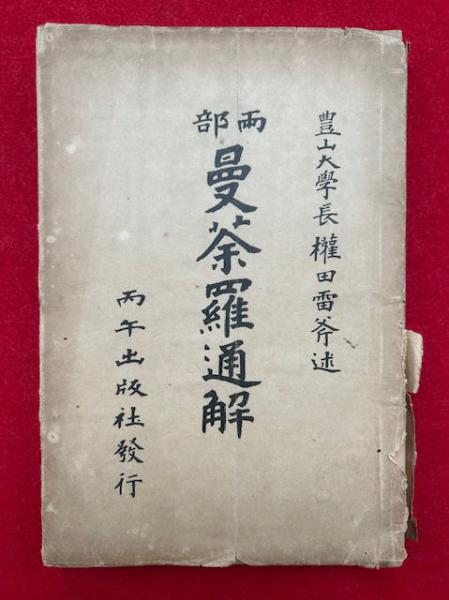 豊山大學長 權田雷斧述
兩部
曼荼羅通解
丙午出版社發行